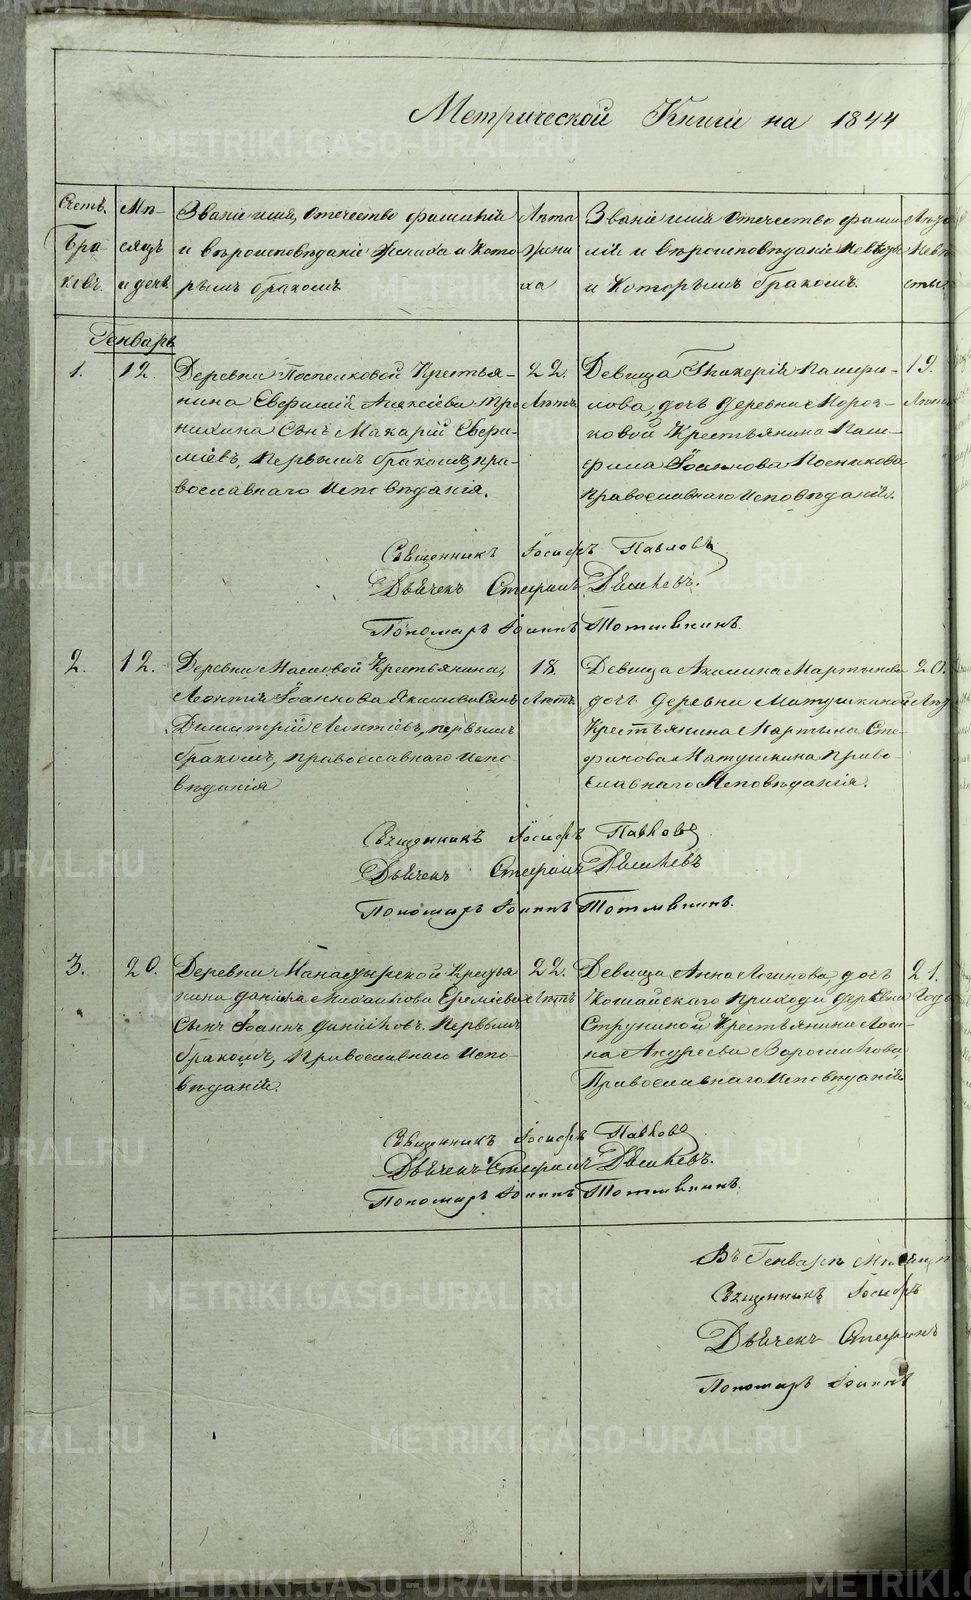 Метрической Книги на 1844
Счетъ Бра ковъ.
Мѣ- сяцъ и день
Званіе имя, отечество фамилія
и вѣроисповѣданіе Жениха и Кото
рымъ бракомъ
Лѣта Жени ха
Званіе имя отечество фами
лія и вѣроисповѣданіе Невѣсты
и Которымъ бракомъ.
Лѣта Невѣ сты.
Генварь
1. 12.
Деревни Крестья-
нина Евфимія Алексіева
Сынъ Макарій Евфи-
міевъ, Первымъ бракомъ, пра-
вославнаго Исповѣданія.
22. Лѣтъ
Девица Гликерія Памфи-
лова, дочь деревни
Крестьянина Пам-
фила
Православнаго Исповѣданія.
19.
Священникъ Іосифъ Павловъ
Дьячекъ Стефанъ
Пономарь Іоаннъ
2. 12.
Деревни Крестьянина,
Леонтія Іоаннова Сынъ
Димитрій Леонтіевъ, первымъ
бракомъ, православнаго Испо
вѣданія
18. Лѣтъ
Девица Акилина Мартынова
дочь деревни Матушкиной
Крестьянина Мартына Сте
фанова Матушкина Право-
славнаго Исповѣданія.
20.
Священникъ Іосифъ Павловъ
Дьячекъ Стефанъ
Пономарь Іоаннъ
3. 20.
Деревни Крестья
нина Данила Михаилова Еремѣева
Сынъ Іоаннъ Даниловъ. Первымъ
бракомъ, Православнаго Испо-
вѣданія.
22. Лѣтъ
Девица Анна Логинова, дочь
прихода деревни
Струниной Крестьянина Логи-
на Андреева Ворошилова,
Православнаго Исповѣданія
21. Года
Священникъ Іосифъ Павловъ
Дьячекъ Стефанъ
Пономарь Іоаннъ
Въ Генварѣ
Священникъ Іосифъ
Дьячекъ Стефанъ
Пономарь Іоаннъ
METRIKI.GASO-URAL.RU